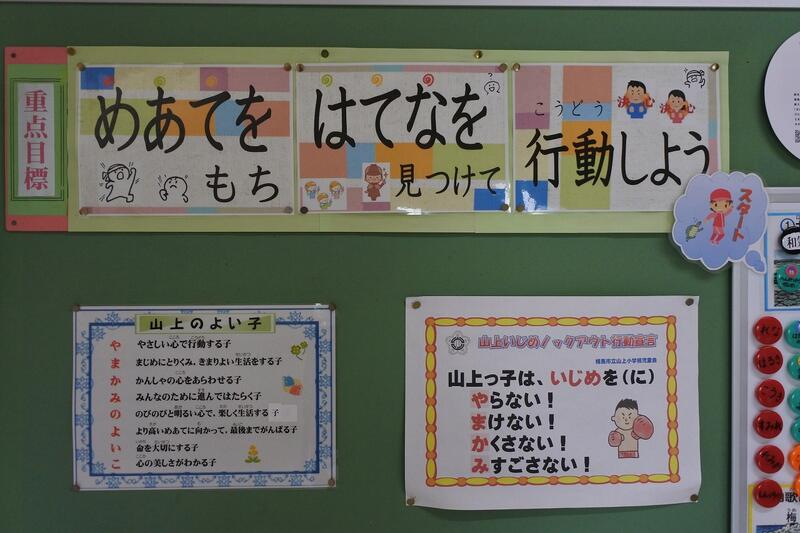 重点目標
めあてを
もち
はてなを
見つけて
こうどう
行動しよう
スタート
山上のよい子
やまかみのよいこ
やさしい心で行動する子
まじめにとりくみ、きまりよい生活をする子
かんしゃの心をあらわせる子
みんなのために進んではたらく子
のびのびと明るい心で、楽しく生活する子
より高いめあてに向かって、最後までがんばる子
命を大切にする子
心の美しさがわかる子
山上いじめノックアウト行動宣言
山上っ子は、いじめを(に)
やらない!
まけない!
かくさない!
みすごさない!